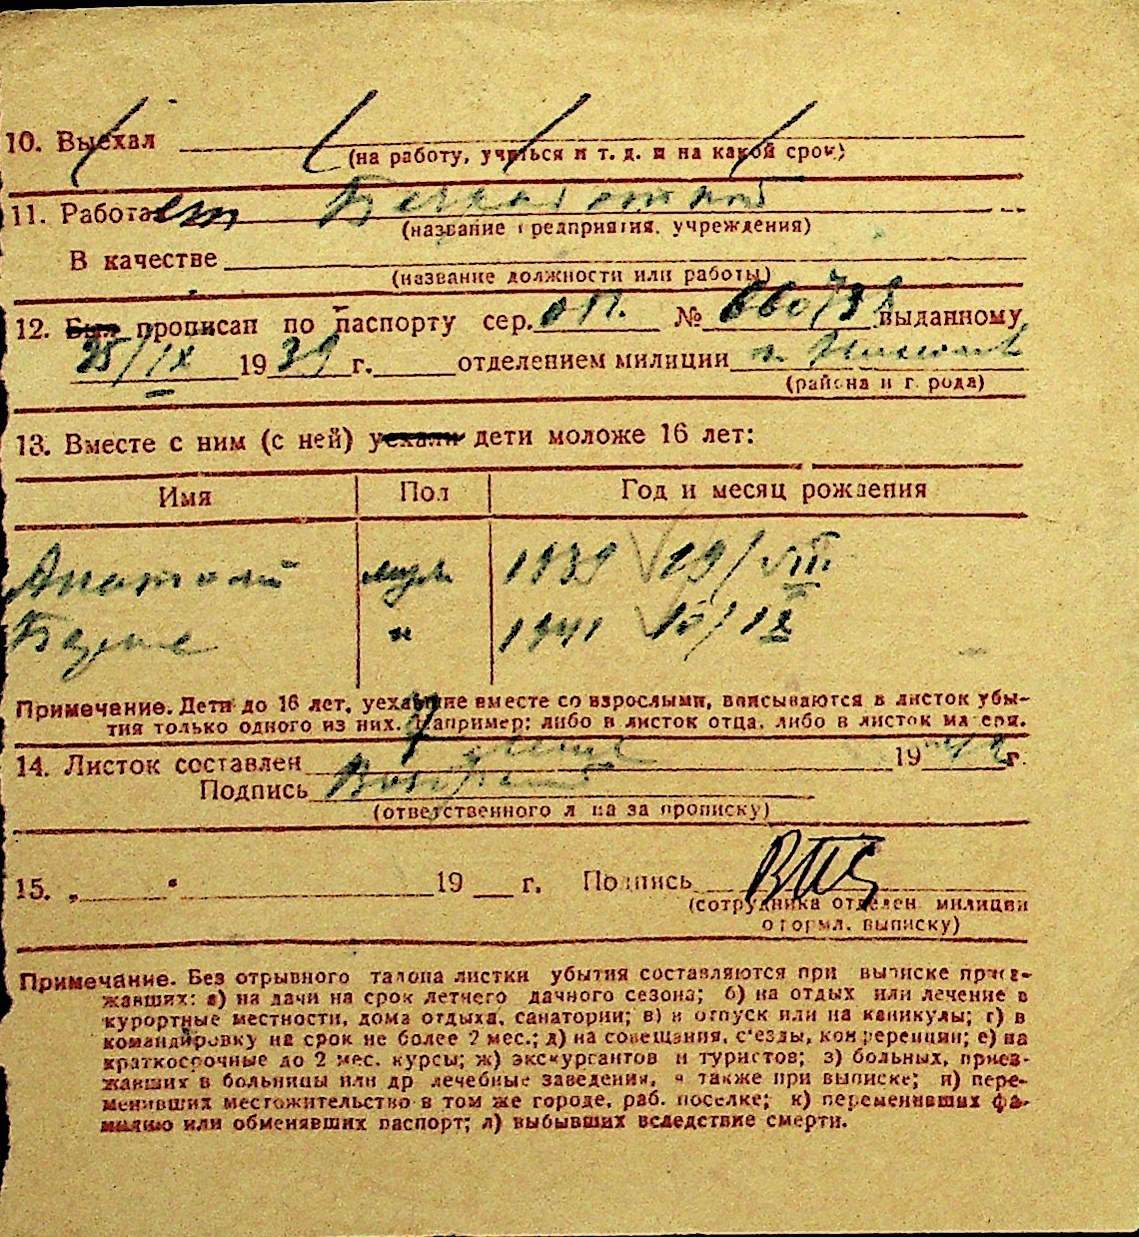 10. Выехал
(на работу, учиться и т. д. и на какой срок)
11. Работает
(название предприятия, учреждения)
В качестве
(название должности или работы)
12. Был прописан по паспорту сер. № выданному
25/IX 1939 г. отделением милиции
(района и г. рода)
13. Вместе с ним (с ней) уехали дети моложе 16 лет:
Имя Пол Год и месяц рождения
Анатолий муж 1939 19/VIII
" 1941
Примечание. Дети до 16 лет, уехавшие вместе со взрослыми, вписываются в листок убы-
тия только одного из них. Например: либо в листок отца, либо в листок матери.
14. Листок составлен 1942 г.
Подпись
(ответственного лица за прописку)
15. „ " 19 г. Подпись
(сотрудника отделен. милиции
оформл. выписку)
Примечание. Без отрывного талона листки убытия составляются при выписке приез-
жавших: а) на дачи на срок летнего дачного сезона; б) на отдых или лечение в
курортные местности, дома отдыха, санатории; в) в отпуск или на каникулы; г) в
командировку на срок не более 2 мес.; д) на совещания, с'езды, конференции; е) на
краткосрочные до 2 мес. курсы; ж) экскургантов и туристов; з) больных, приез-
жавших в больницы или др лечебные заведения, а также при выписке; и) пере-
менивших местожительство в том же городе, раб. поселке; к) переменивших фа-
милию или обменявших паспорт; л) выбывших вследствие смерти.